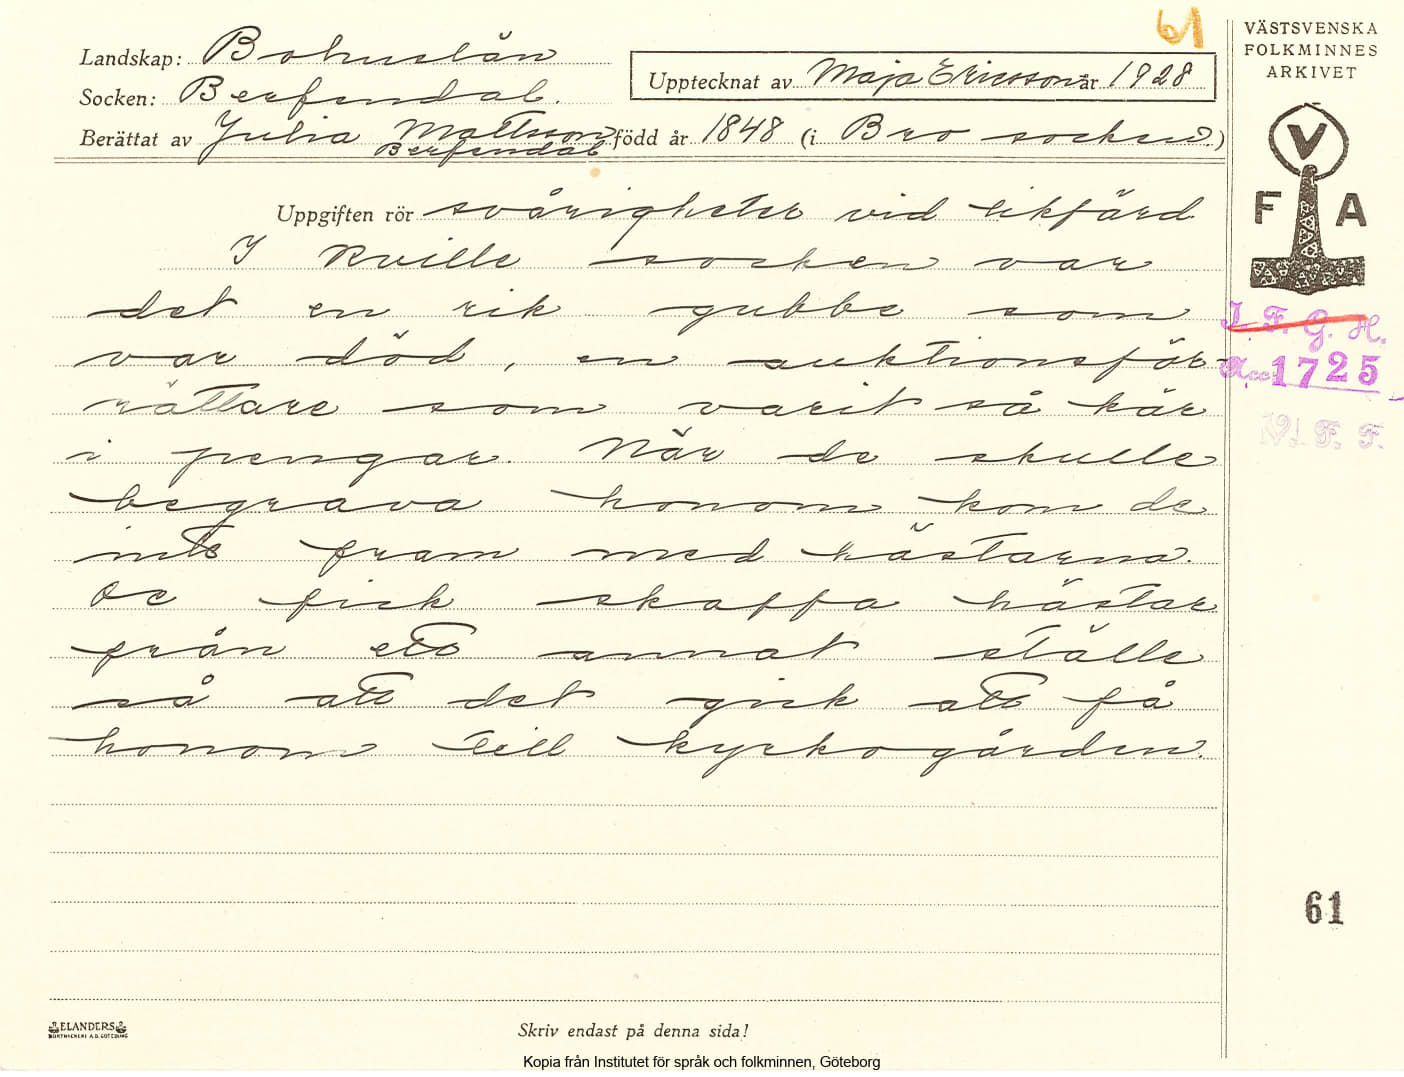 61
Landskap: Bohuslän
Socken: Berfendal.
Upptecknat av Maja Ericsson år 1928
Berättat av Julia Mattsson född år 1848 (i Bro socken.)
Berfendal
VÄSTSVENSKA
FOLKMINNES
ARKIVET
V
F A
Uppgiften rör svårigheter vid likfärd
I Kville socken var
det en rik gubbe som
var död, en auktionsför-
rättare som varit så kär
i pengar. När de skulle
begrava honom kom de
inte fram med hästarna.
De fick skaffa hästar
från ett annat ställe
så att det gick att få
honom till kyrkogården.
I. F. G. H.
Acc. 1725
V. F. F.
61
ELANDERS
BOKTRYCKERI A.B. GÖTEBORG
Skriv endast på denna sida!
Kopia från Institutet för språk och folkminnen, Göteborg